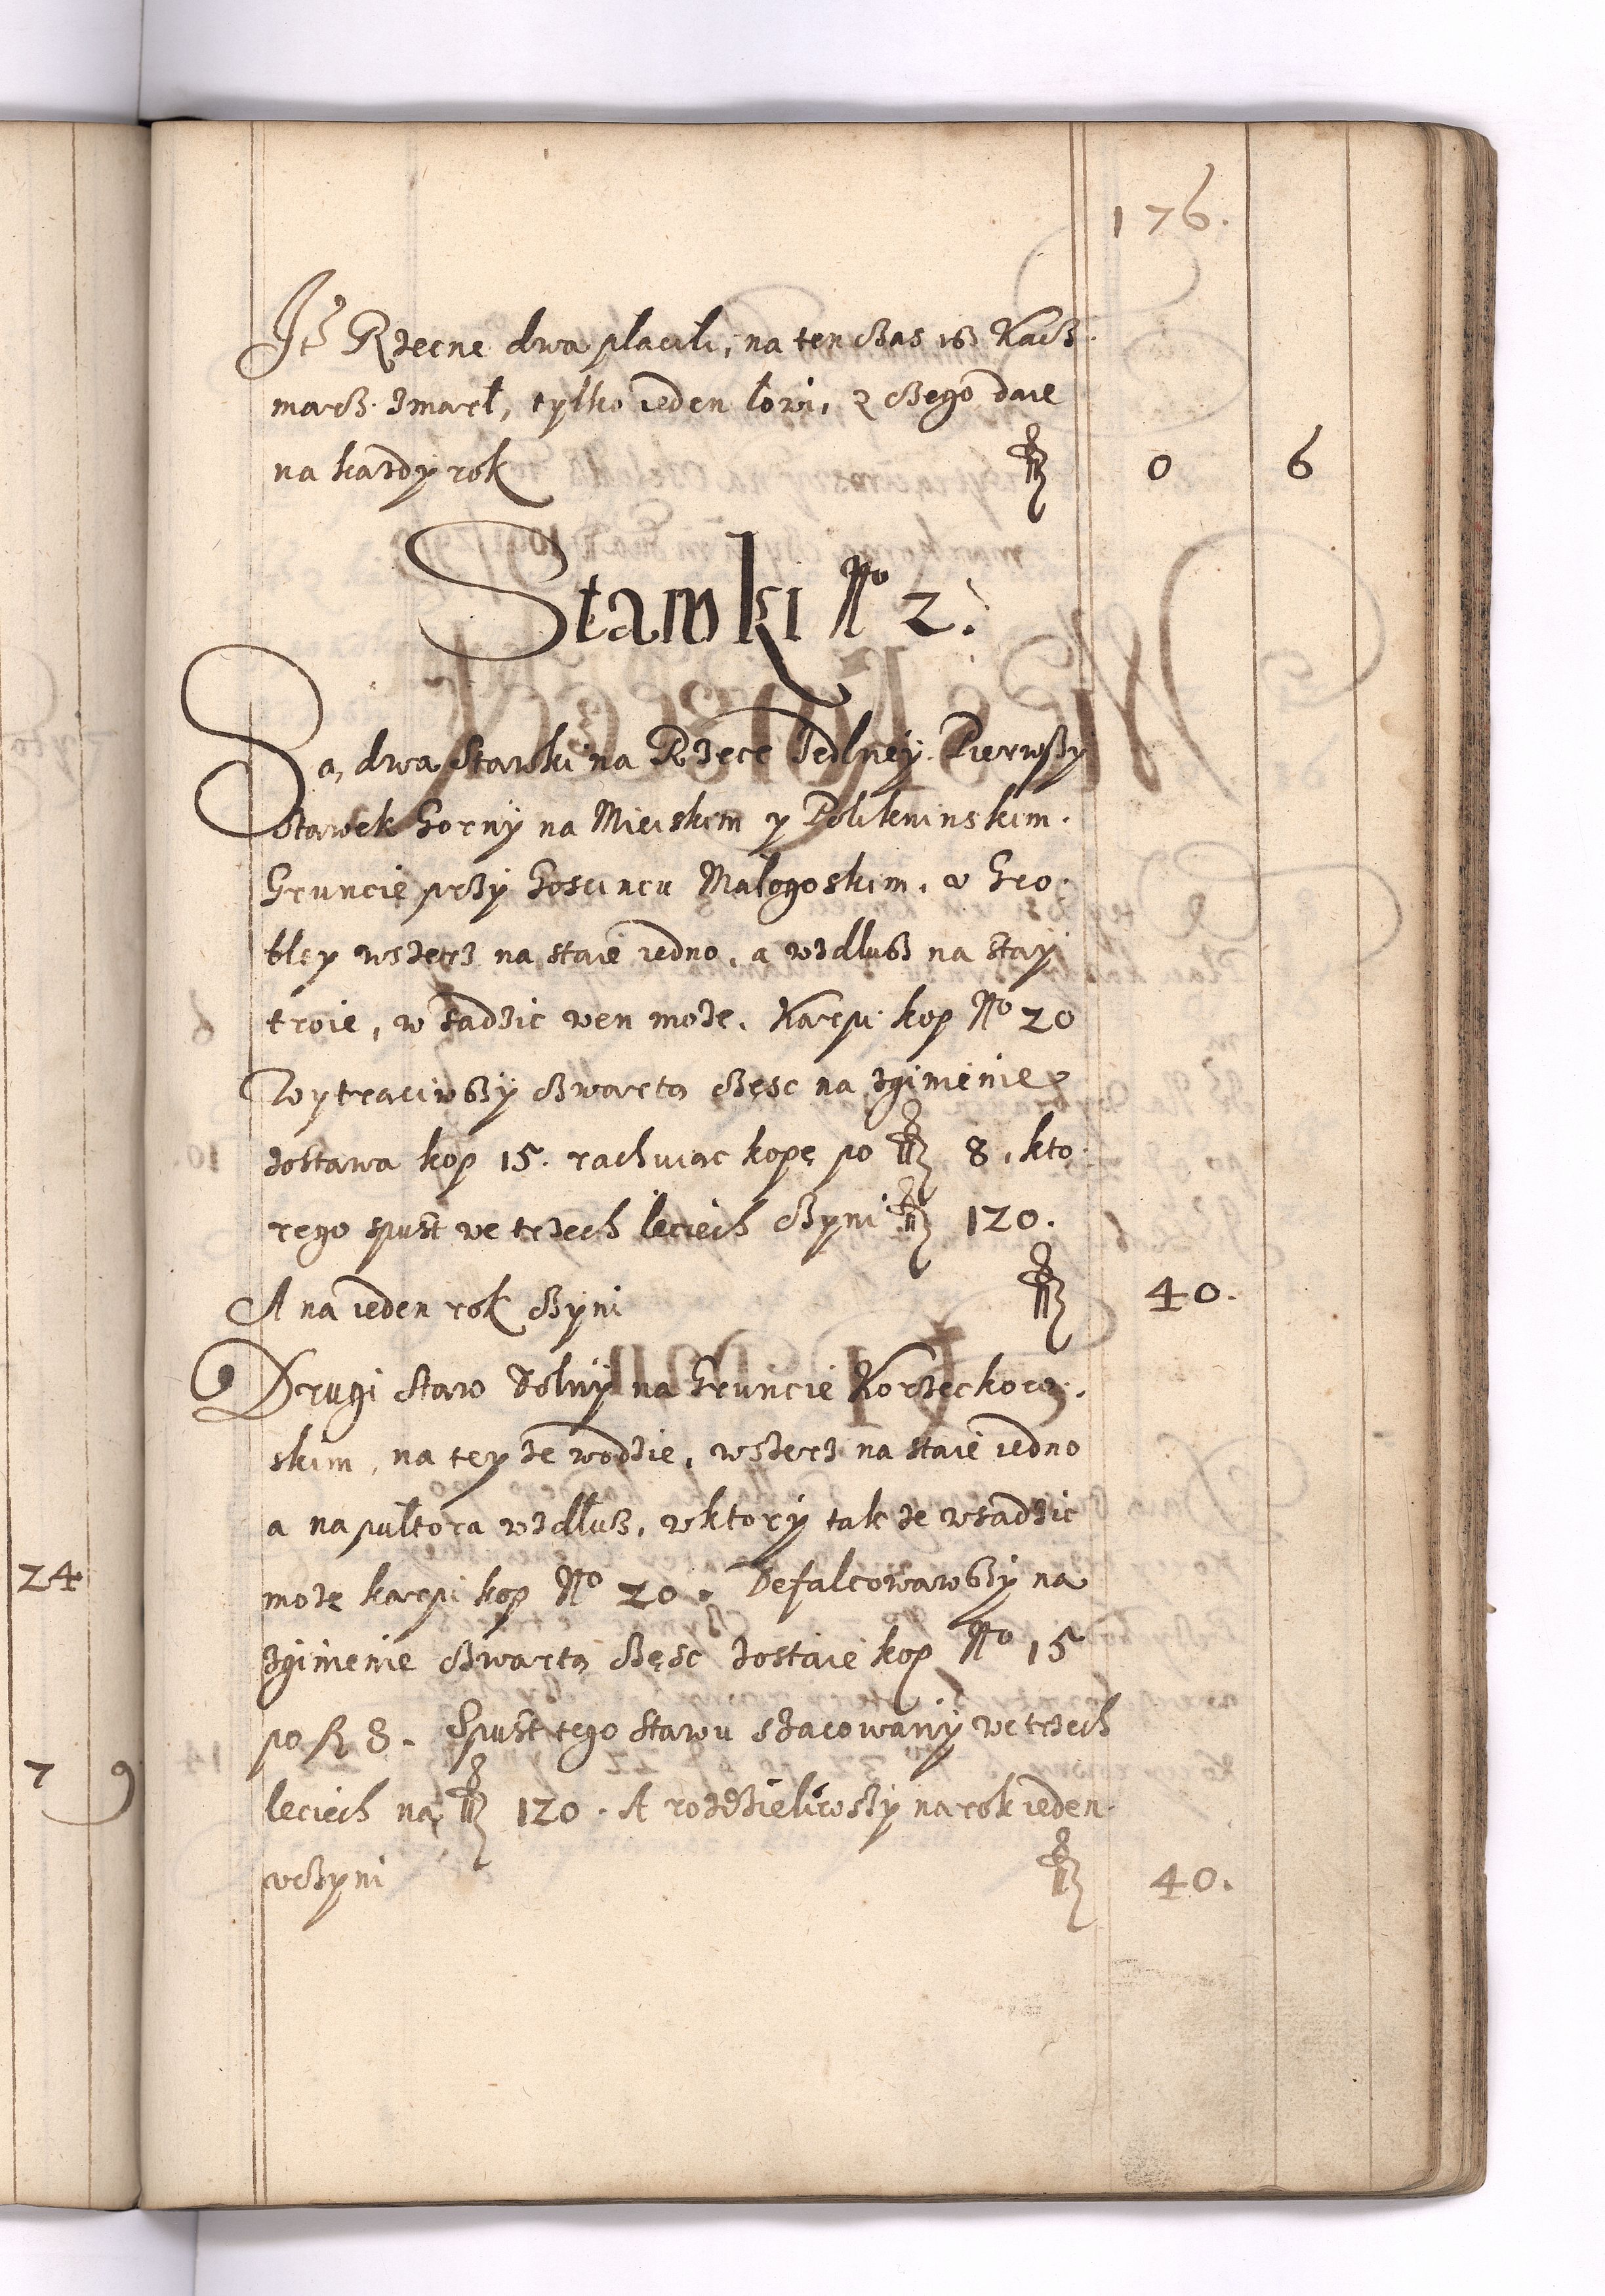 176.
Itē Rzecne dwa płacili, na ten czas iß Kacz
marcz zmarł, tylko ieden łowi, z czego daie
na każdy rok fl 0 6
Stawki No 2.
Są dwa Stawki na Rzece Jedlney. Pierwszy
Stawek Gorny na Mieiskim y Polikninskim.
Gruncie przy Goscincu Małogoskim. w Gro
bley wszerz na staie iedno, a wzdłusz na stay
troie, w sadzic wen może. Karpi kop No 20
Wytraciwszy czwartą częsc na zginienie
zostawa kop 15. rachuiąc kopę po fl 8, kto
rego spust we trzech leciech czyni fl 120.
A na ieden rok czyni fl 40.
Drugi Staw Dolny na Gruncie Korzeckow.
skim, na tey że wodzie, wszerz na staie iedno
a na pułtora wzdłusz, w ktory tak że wsadzic
może karpi kop No 20. Defalcowawszy na
zginienie czwartą częsc zostaie kop No 15
po fl 8. Spust tego Stawu szacowany we trzech
leciech na fl 120. A rozdzieliwszy na rok ieden
uczyni fl 40.
24
7 9